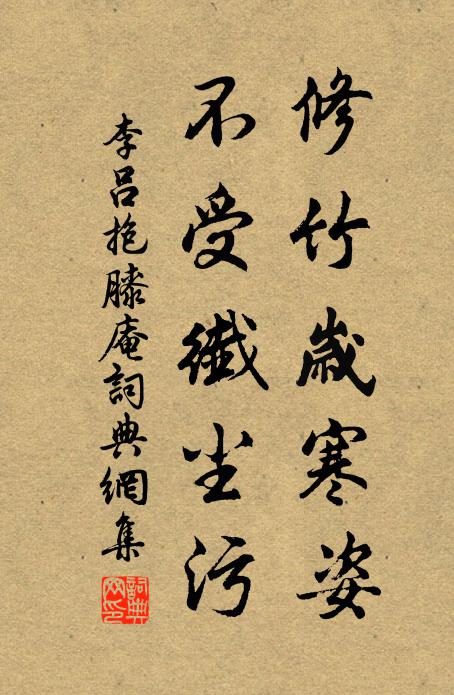 修竹歲寒姿
不受纖尘污
李吕抱膝庵詞典網集
詞典网印